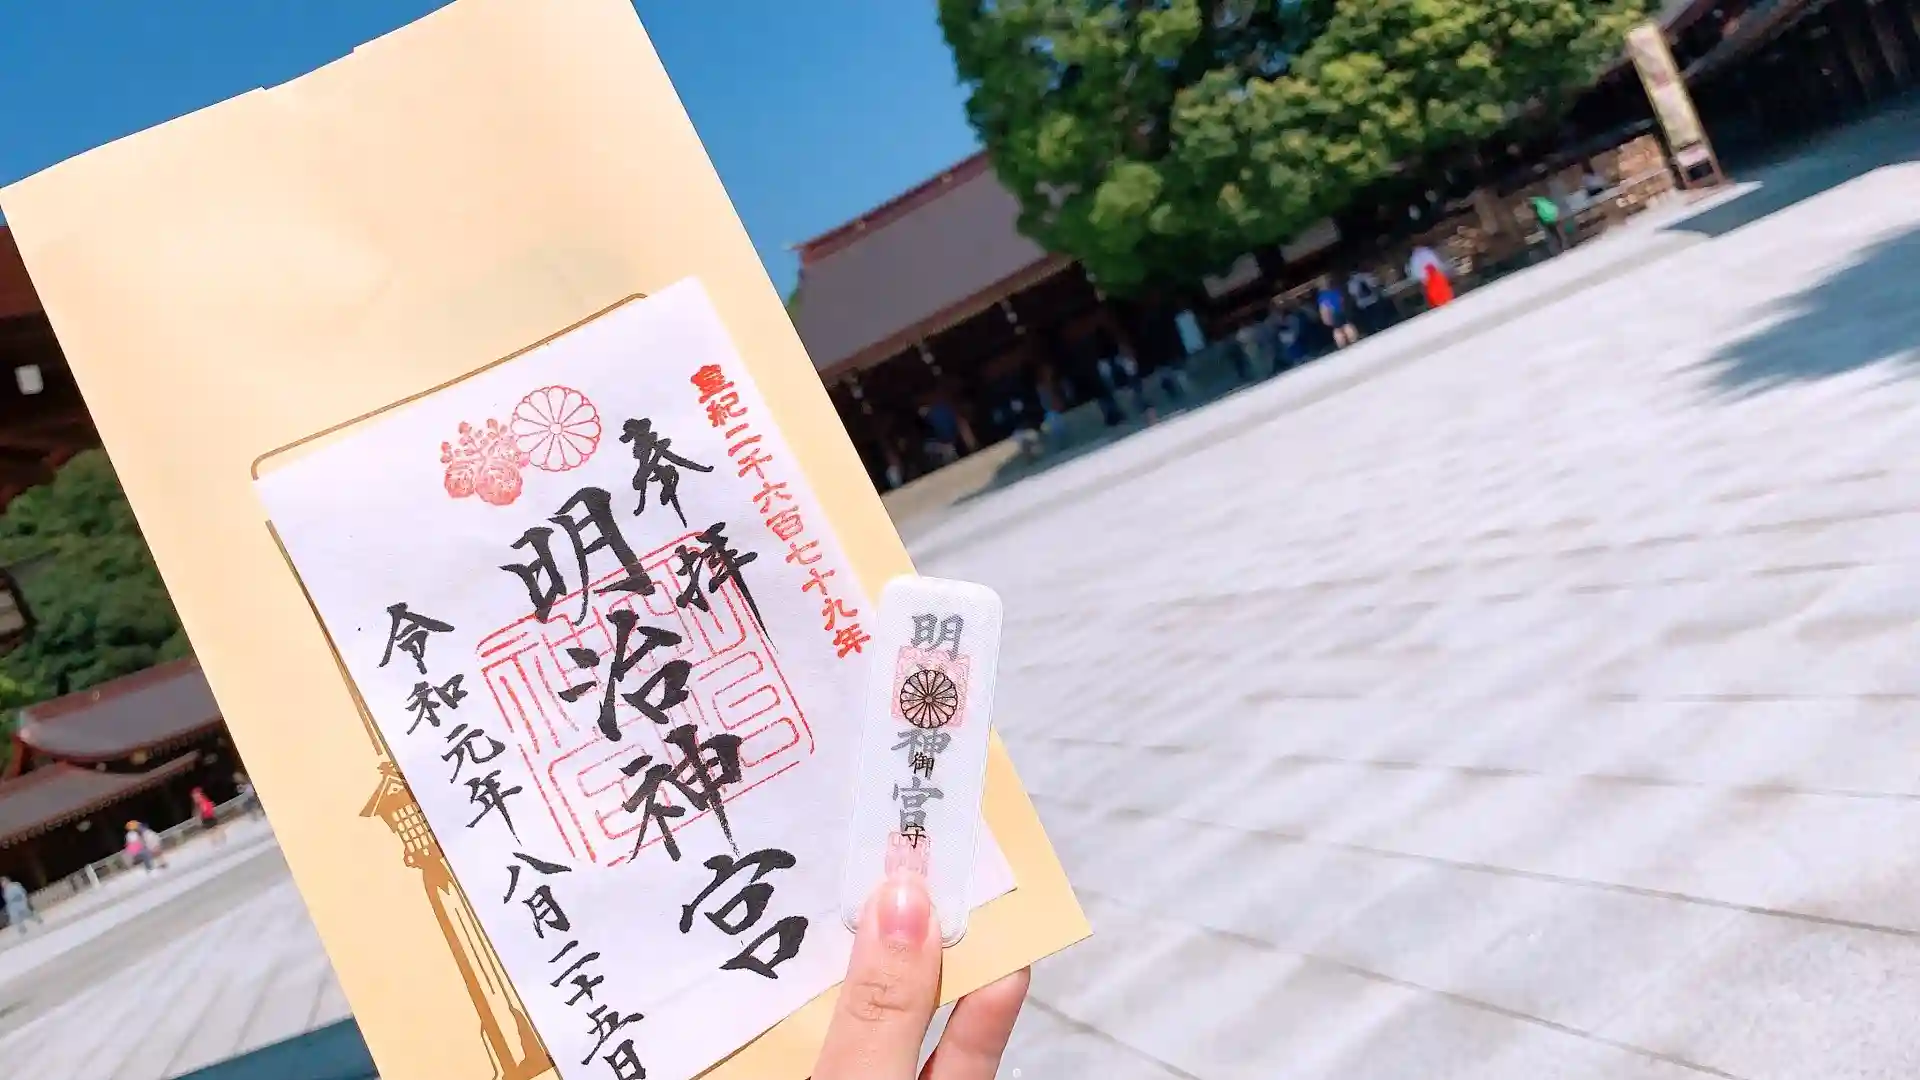 皇紀二千六百七十九年
奉拝
明治神宮
令和元年八月二十五日
明
神宮
御守